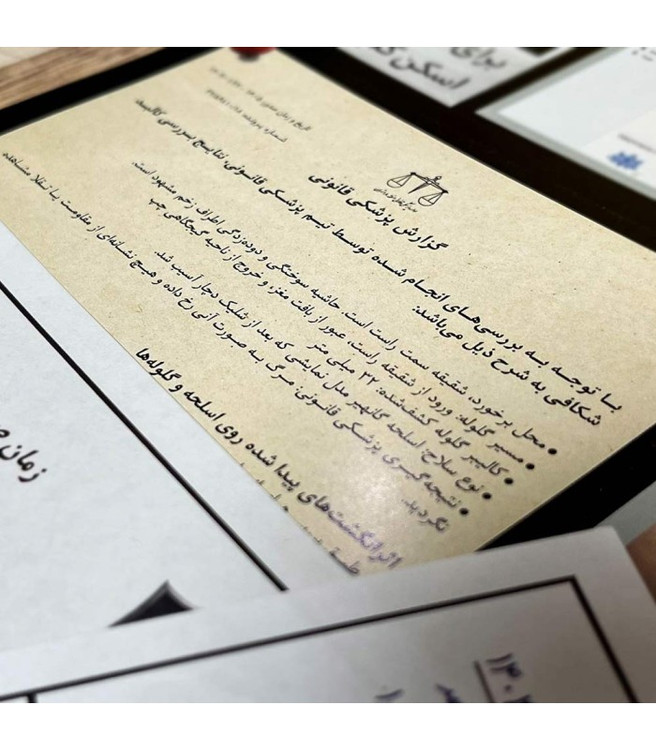 برای
اسکن ک
گزارش پزشکی قانونی
با توجه به بررسی‌های انجام شده توسط تیم پزشکی قانونی، نتایج بررسی کالبد
شکافی به شرح ذیل می‌باشد:
• محل برخورد، شقیقه سمت راست است. حاشیه سوختگی و دوده‌زدگی اطراف زخم مشهود است.
• مسیر گلوله: ورود از شقیقه راست، عبور از بافت مغز، و خروج از ناحیه گیجگاهی چپ
• کالیبر گلوله کشف‌شده: ۲۲ میلی متر
• نوع سلاح: اسلحه گانهیر مدل نمایشی که بعد از شلیک دچار آسیب شد.
• نتیجه‌گیری پزشکی قانونی: مرگ به صورت آنی رخ داده و هیچ نشانه‌ای از مقاومت یا تقلا مشاهده
نگردید.
اثر انگشت‌های پیدا شده روی اسلحه و گلوله‌ها
زمان